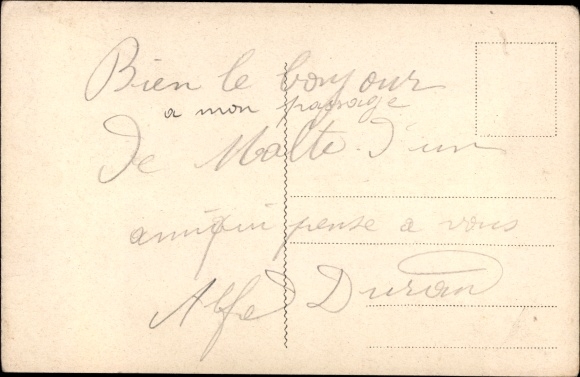 Bien le bonjour
a mon passage
De Malte. d'un
ami qui pense a vous
Alfred Duran